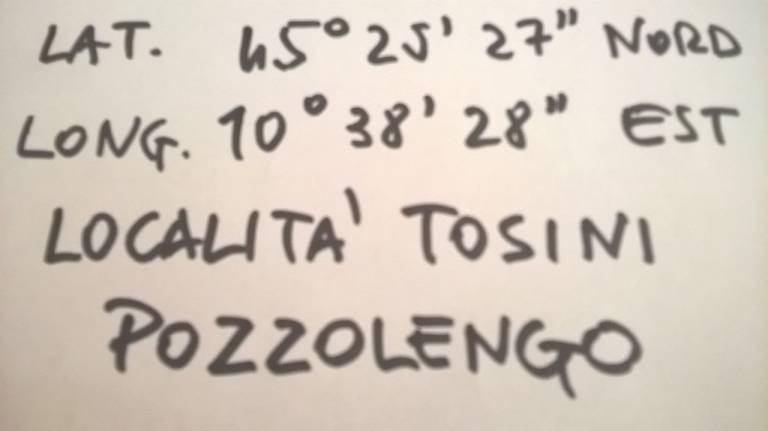 LAT. 45° 25' 27" NORD
LONG. 10° 38' 28" EST
LOCALITA' TOSINI
POZZOLENGO